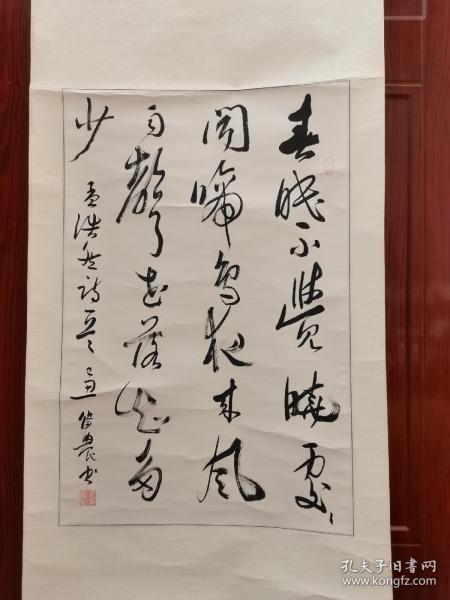 春眠不觉晓处〻
闻啼鸟夜来风
雨声花落知多
少
孟浩然诗一首
农书
孔夫子旧书网
www.kongfz.com